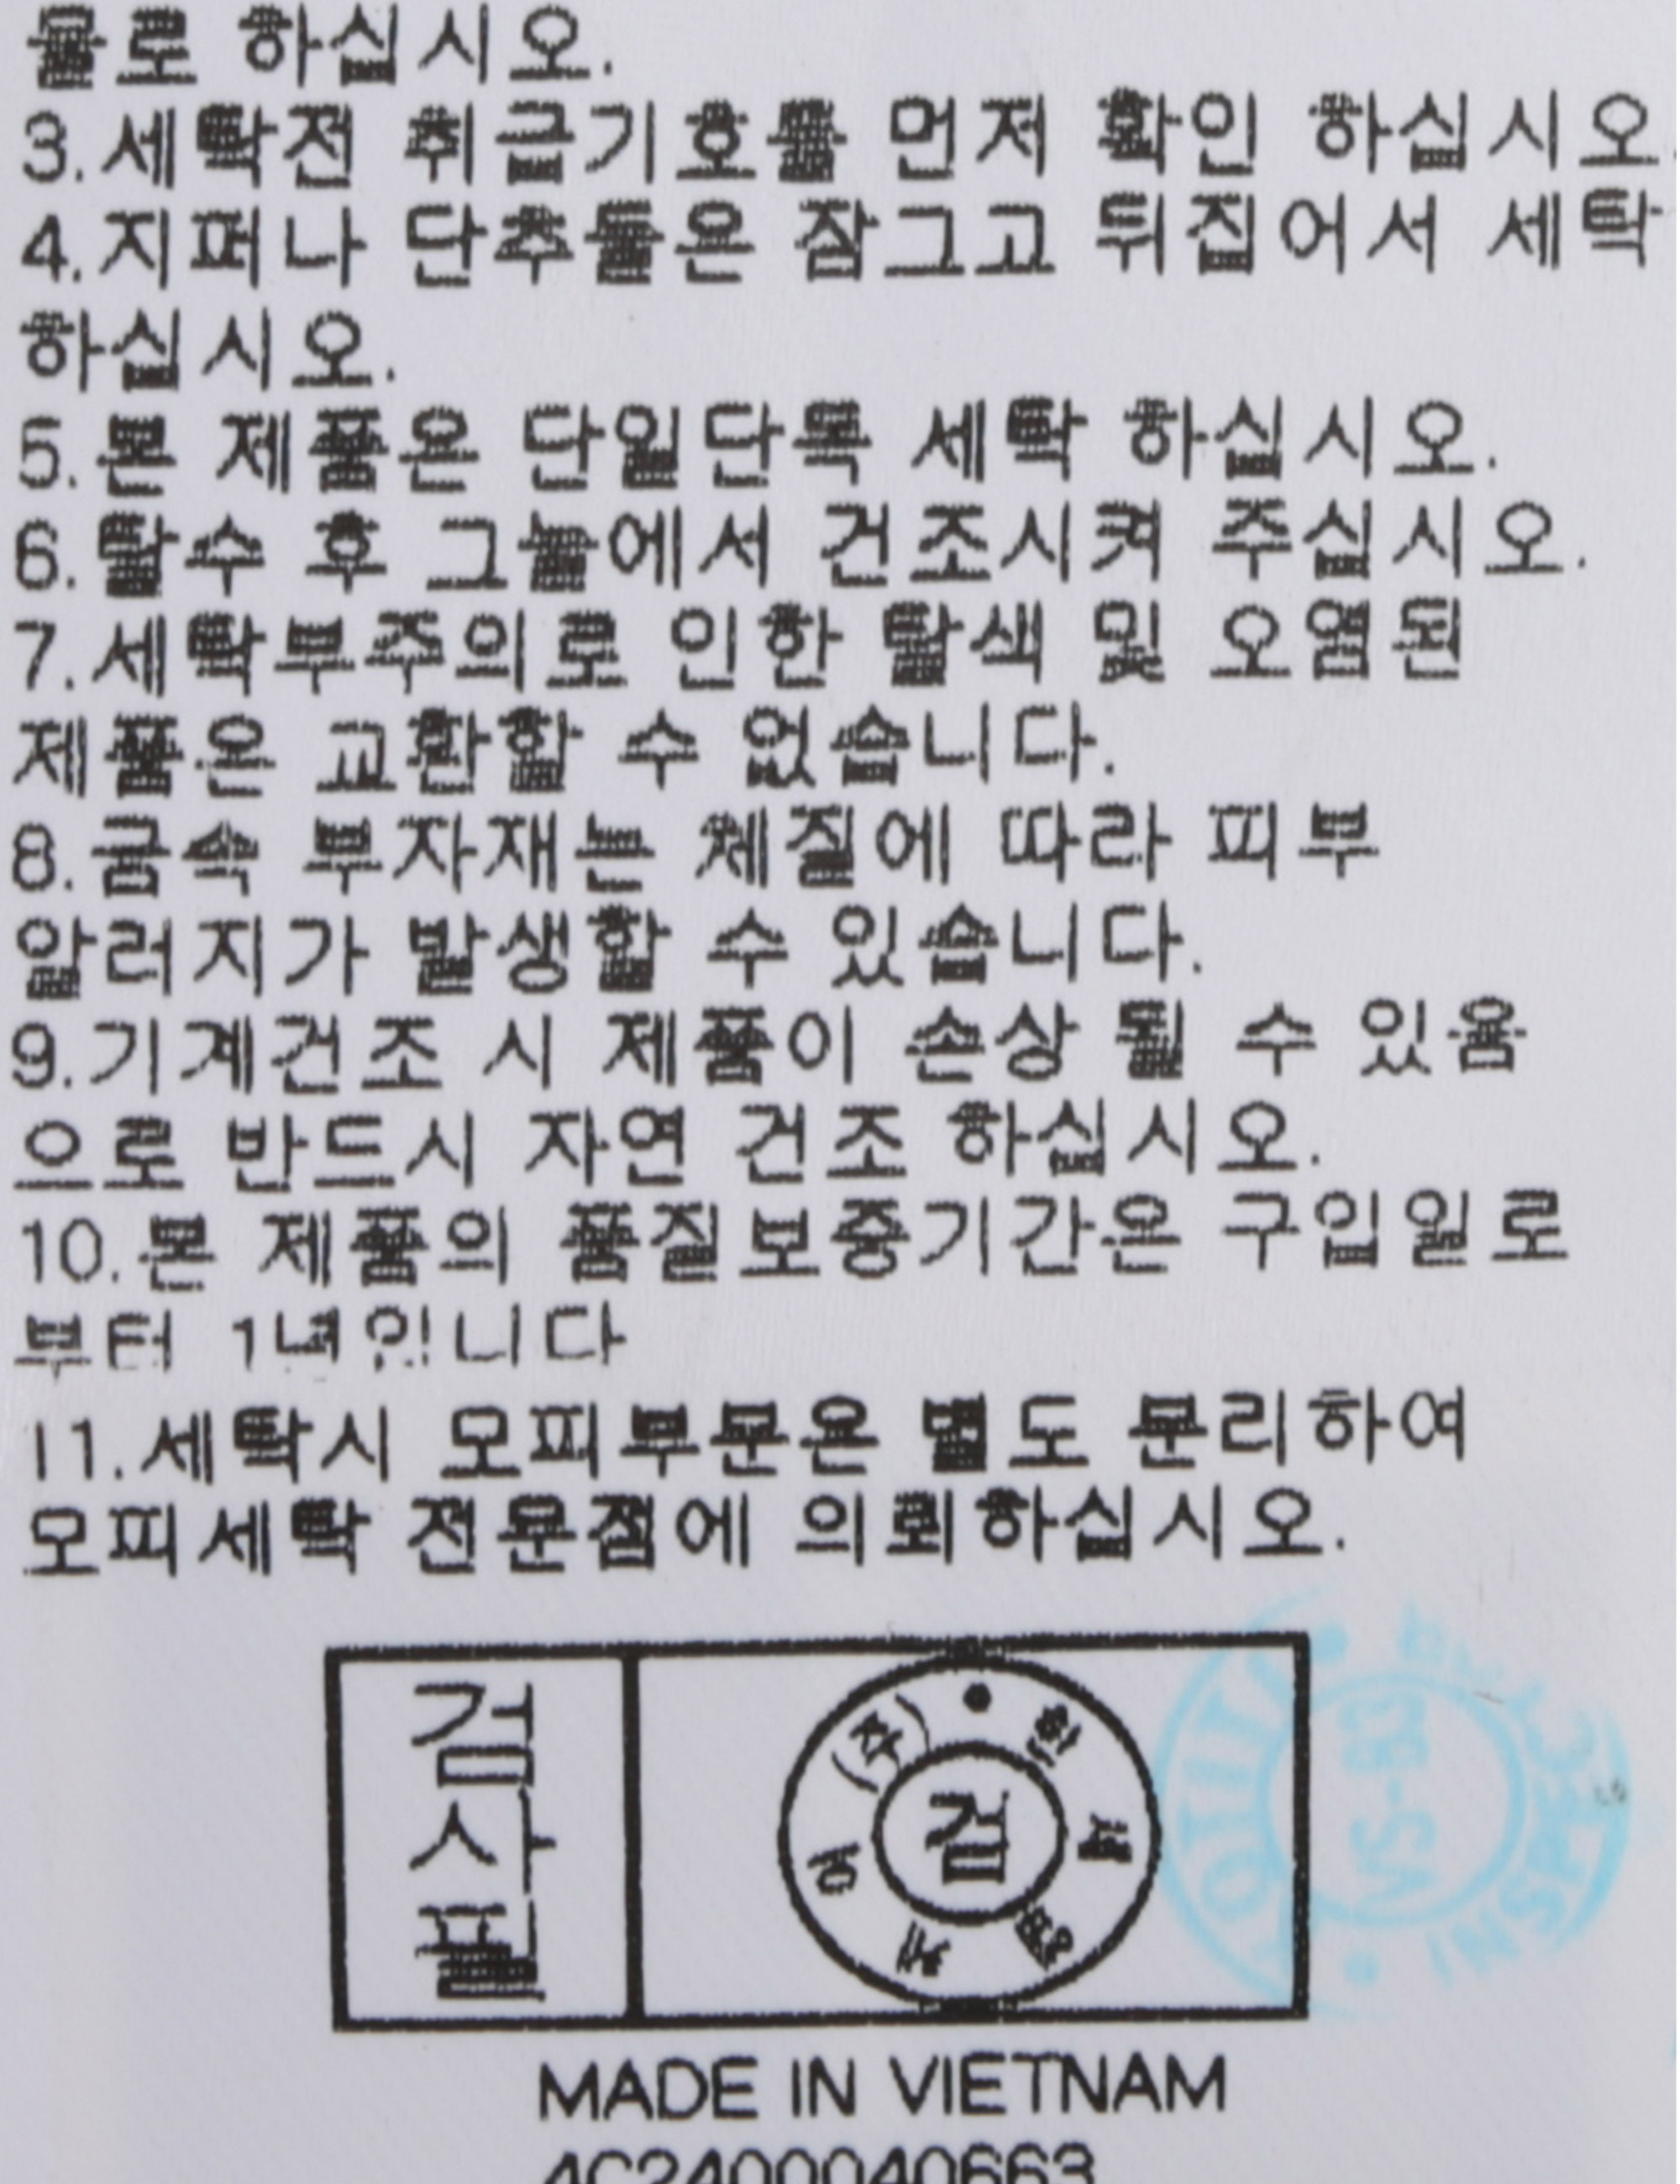 물로 하십시오.
3.세탁전 취급기호를 먼저 확인 하십시오.
4.지퍼나 단추들은 잠그고 뒤집어서 세탁
하십시오.
5.본 제품은 단일단독 세탁 하십시오.
6.탈수 후 그늘에서 건조시켜 주십시오.
7.세탁부주의로 인한 탈색 및 오염된
제품은 교환할 수 없습니다.
8.금속 부자재는 체질에 따라 피부
알러지가 발생할 수 있습니다.
9.기계건조 시 제품이 손상 될 수 있음
으로 반드시 자연 건조 하십시오.
10.본 제품의 품질보증기간은 구입일로
부터 1년입니다
11.세탁시 모피부분은 별도 분리하여
모피세탁 전문점에 의뢰하십시오.
검사필
(주)한세엠케이
검
VS-83
MADE IN VIETNAM
4C2400040663